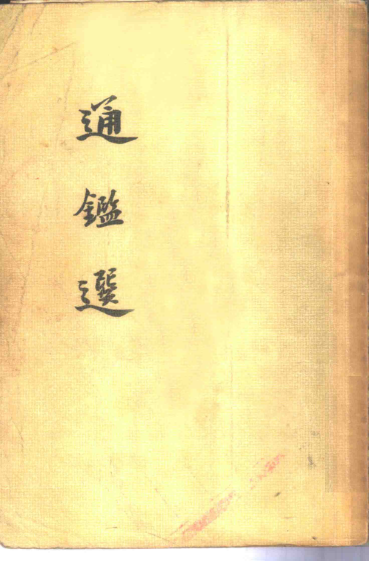 通鑑選